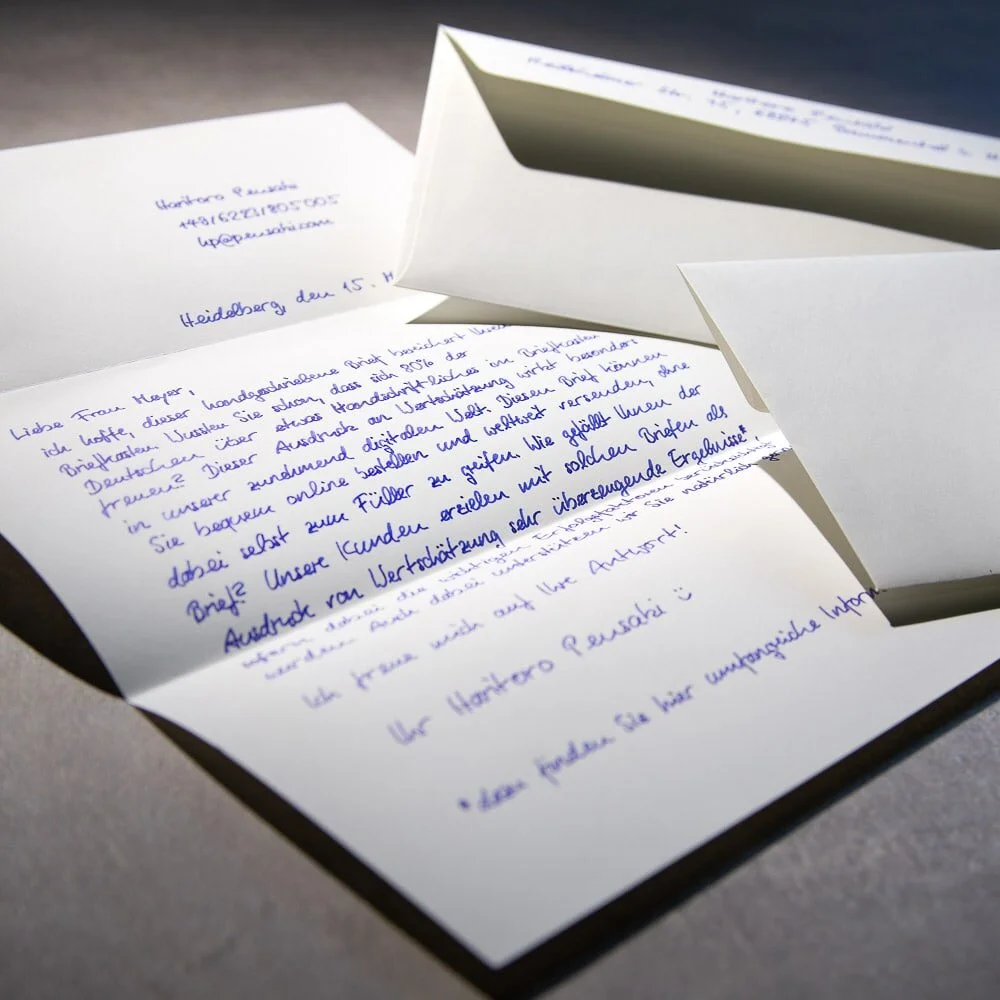 Haritoro Pensahi
+49/6223/805005
hp@pensahi.com
Heidelberg, den 15.
Liebe Frau Meyer,
ich hoffe, dieser handgeschriebene Brief bereichert Ihren
Briefkasten. Wussten Sie schon, dass sich 80% der
Deutschen über etwas Handschriftliches im Briefkasten
freuen? Dieser Ausdruck an Wertschätzung wirkt besonders
in unserer zunehmend digitalen Welt. Diesen Brief können
Sie bequem online bestellen und weltweit versenden, ohne
dabei selbst zum Füller zu greifen. Wie gefällt Ihnen der
Brief? Unsere Kunden erzielen mit solchen Briefen als
Ausdruck von Wertschätzung sehr überzeugende Ergebnisse*,
sofern dabei die wichtigen Erfolgsfaktoren berücksichtigt
werden. Auch dabei unterstützen wir Sie natürlich
Ich freue mich auf Ihre Antwort!
Ihr Haritoro Pensahi :)
*dazu finden Sie hier umfangreiche Inform
Haritoro Pensahi
Str. 75,